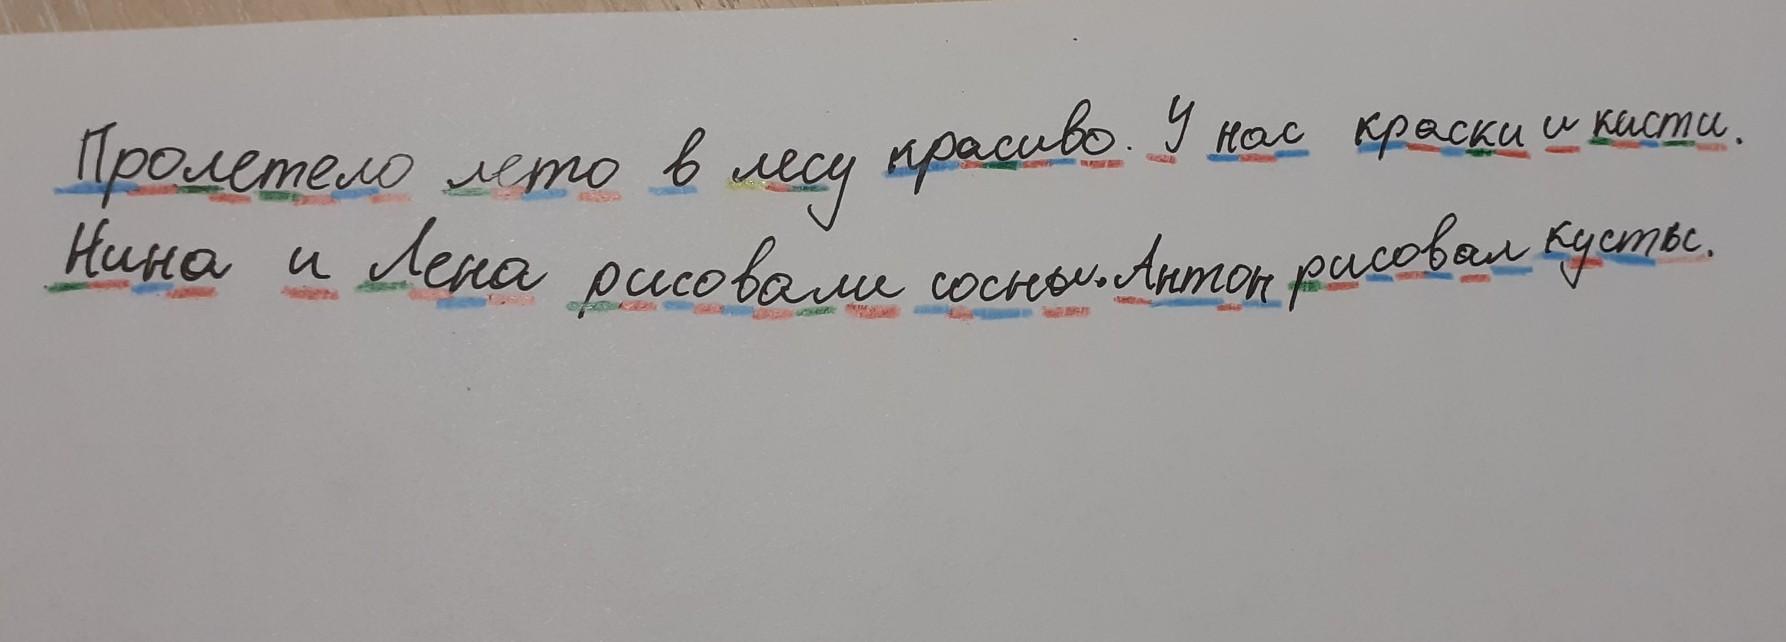 Пролетело лето в лесу красиво. У нас краски и кисти.
Нина и Лена рисовали сосны. Антон рисовал кусты.